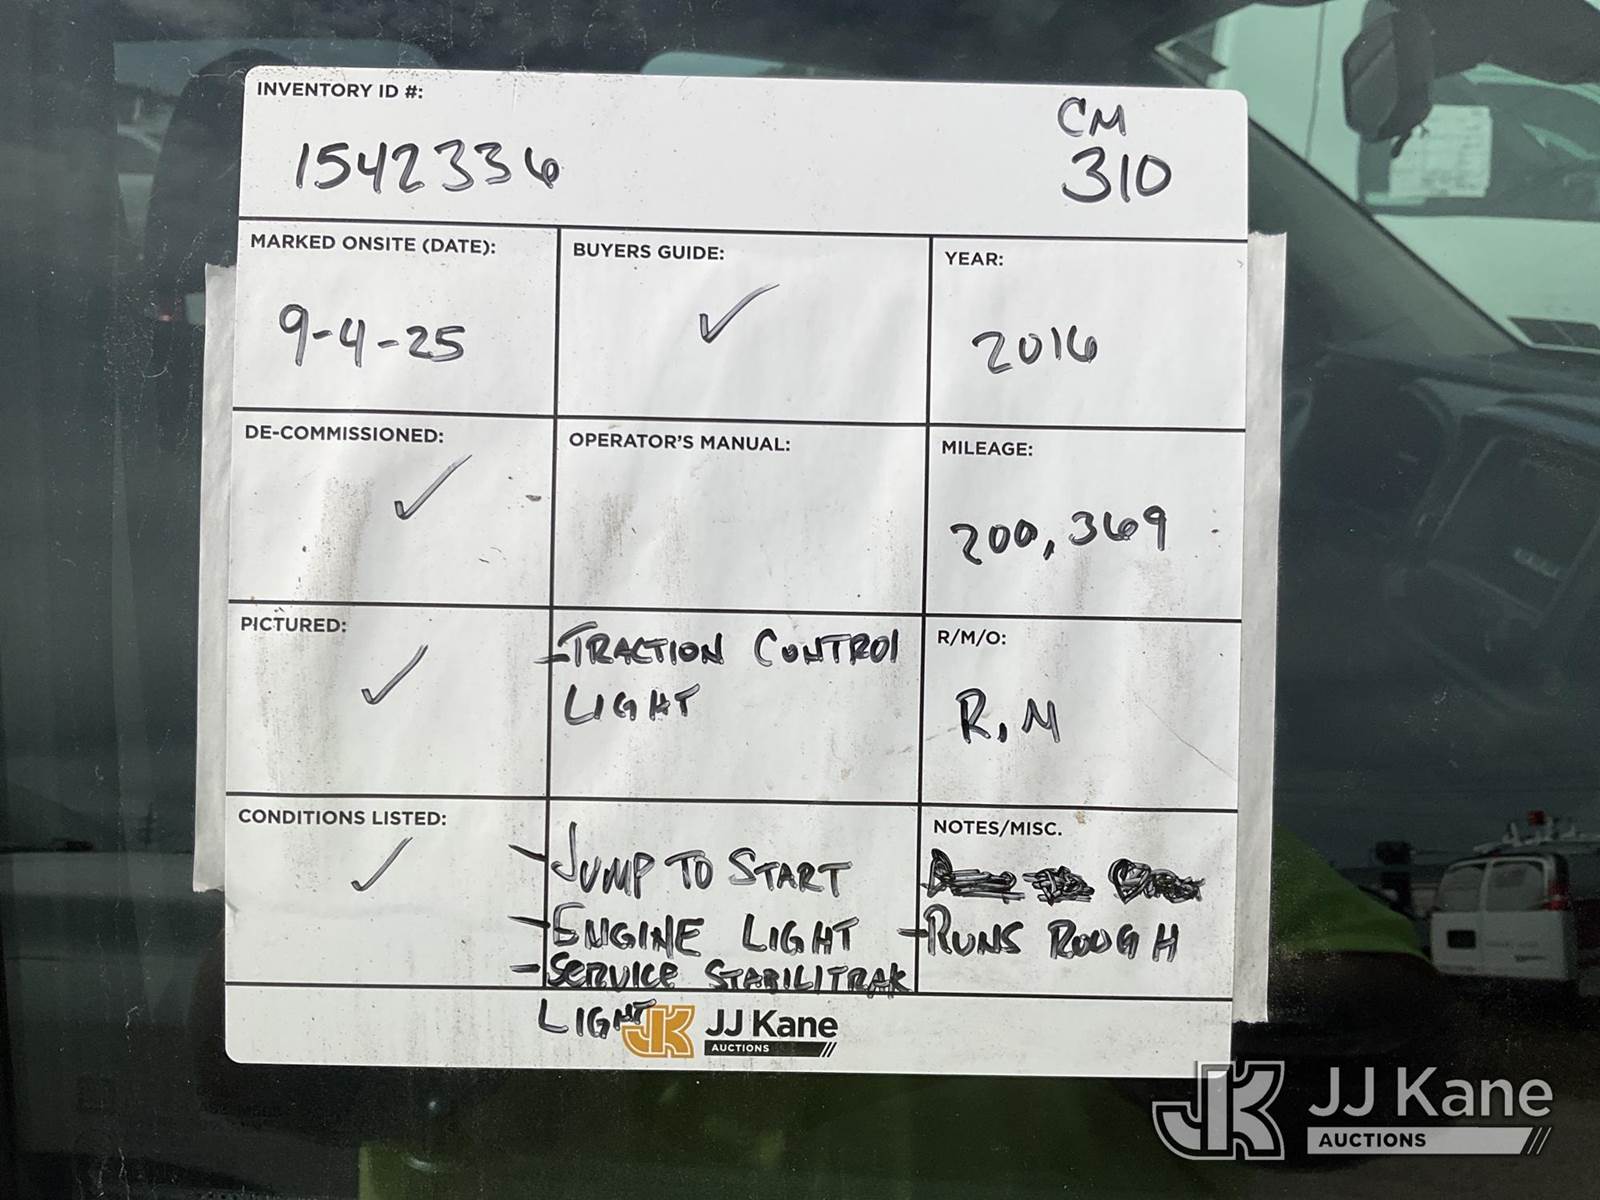 INVENTORY ID #:
1542336
CM
310
MARKED ONSITE (DATE):
9-4-25
BUYERS GUIDE:
✓
YEAR:
2016
DE-COMMISSIONED:
✓
OPERATOR'S MANUAL:
MILEAGE:
200,369
PICTURED:
✓
-TRACTION CONTROL
LIGHT
R/M/O:
R, M
CONDITIONS LISTED:
✓
-JUMP TO START
-ENGINE LIGHT
-SERVICE STABILITRAK
LIGHT
NOTES/MISC.
-RUNS ROUGH
JK JJ Kane
AUCTIONS
JK JJ Kane
AUCTIONS